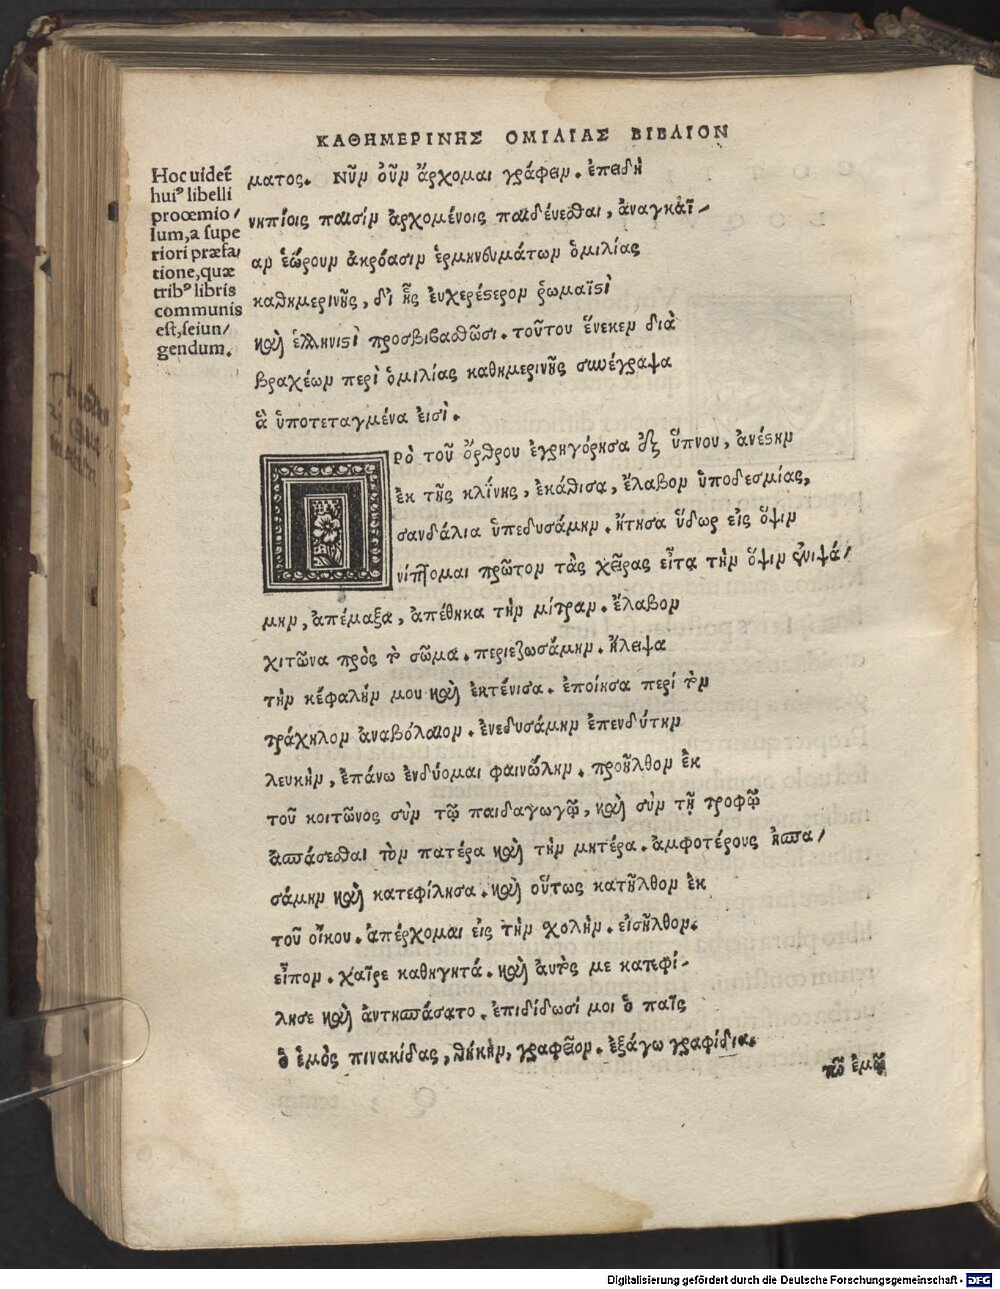 ΚΑΘΗΜΕΡΙΝΗΣ ΟΜΙΛΙΑΣ ΒΙΒΛΙΟΝ
Hoc uidet̃
hui⁹ libelli
procemio/
lum, a supe
riori præfa/
tione, quæ
trib⁹ libris
communis
est, seiun/
gendum.
ματος. Νῦν οὖν ἄρχομαι γράφειν. ἐπειδὴ
νηπίοις παισὶν ἀρχομένοις παιδεύεσθαι, ἀναγκαῖ-
αν ἑώρουν ἀκρόασιν ἑρμηνευμάτων ὁμιλίας
καθημερινῆς, δι ἧς ἐυχερέστερον ῥωμαϊστὶ
καὶ ἑλληνιστὶ προσβιβασθῶσι. τούτου ἕνεκεν διὰ
βραχέων περὶ ὁμιλίας καθημερινῆς συνέγραψα
ἃ ὑποτεταγμένα εἰσὶ.
ΠΡὸ τοῦ ὄρθρου ἐγρηγόρησα ἐξ ὕπνου, ἀνέστην
ἐκ τῆς κλίνης, ἐκάθισα, ἔλαβον ὑποδεσμίας,
σανδάλια ὑπεδυσάμην. ᾔτησα ὕδωρ εἰς ὄψιν
νίπτομαι πρῶτον τὰς χεῖρας εἶτα τὴν ὄψιν ἐνιψά/
μην, ἀπέμαξα, ἀπέθηκα τὴν μίτραν. ἔλαβον
χιτῶνα πρὸς τὸ σῶμα. περιεζωσάμην. ἤλειψα
τὴν κέφαλήν μου καὶ ἐκτένισα. ἐποίησα περί τὸν
τράχηλον ἀναβόλαιον. ἐνεδυσάμην ἐπενδύτην
λευκὴν, ἐπάνω ἐνδύομαι φαινώλην. προῆλθον ἐκ
τοῦ κοιτῶνος σὺν τῷ παιδαγωγῷ, καὶ σὺν τῇ τροφῷ
ἀσπάσεσθαι τὸν πατέρα καὶ τὴν μητέρα. ἀμφοτέρους ἠσπα/
σάμην καὶ κατεφίλησα. καὶ οὕτως κατῆλθον ἐκ
τοῦ οἴκου. ἀπέρχομαι εἰς τὴν σχολήν. εἰσῆλθον.
εἶπον. χαῖρε καθηγητά. καὶ ἀυτός με κατεφί-
λησε καὶ ἀντησπάσατο. ἐπιδίδωσί μοι ὁ παῖς
ὁ ἐμὸς πινακίδας, θήκὴν, γραφεῖον. ἐξάγω γραφίδια.
τῷ ἐμῷ
Digitalisierung gefördert durch die Deutsche Forschungsgemeinschaft - DFG